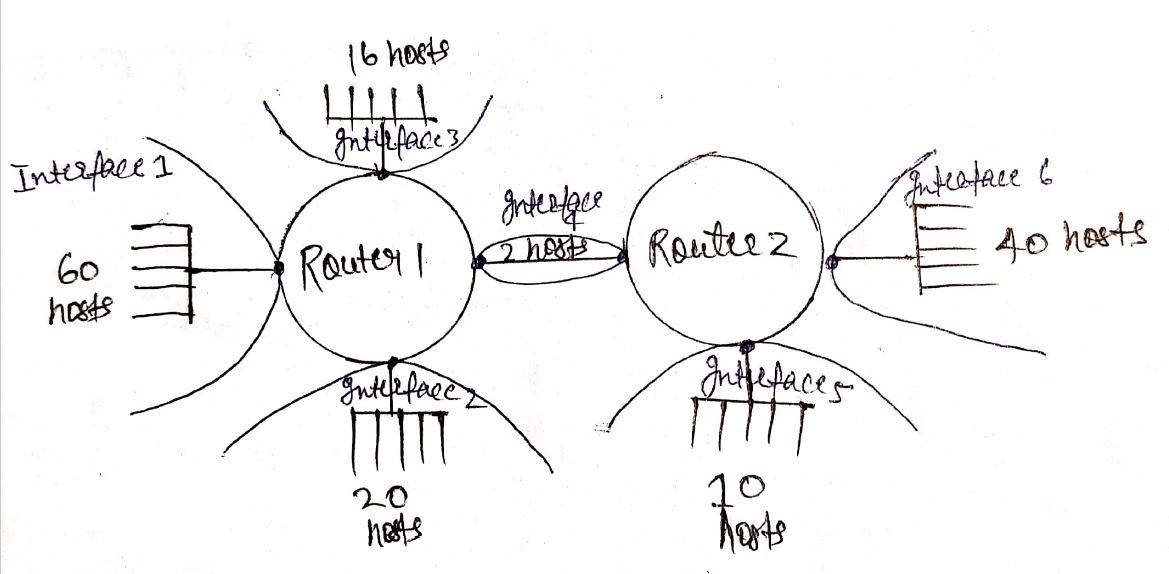 16 hosts
Interface 3
Interface 1
60
hosts
Router 1
Interface
4
2 hosts
Router 2
Interface 6
40 hosts
Interface 2
20
hosts
Interface 5
10
hosts